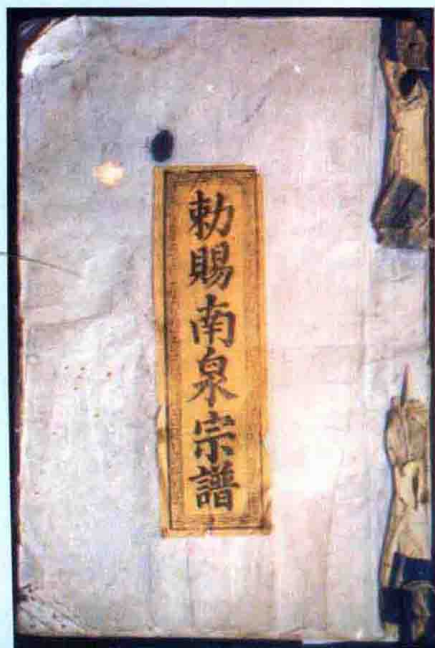 勅賜南泉宗譜